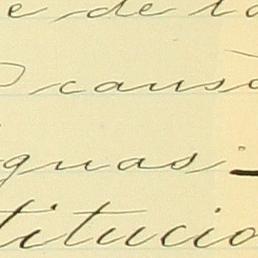 e de la
causo
guas
titucio